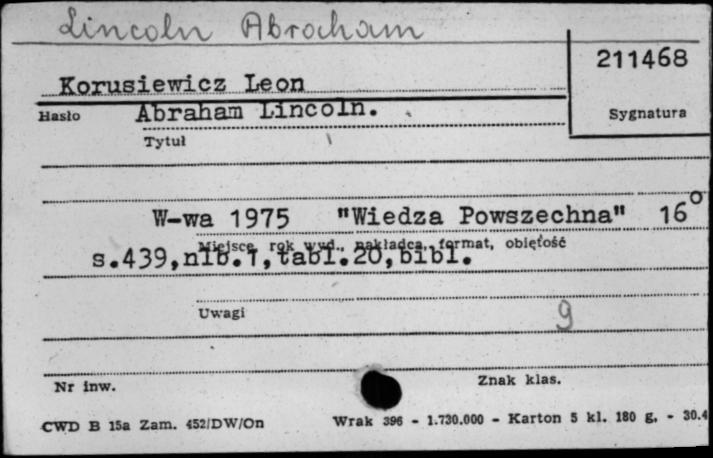 Lincoln Abraham
211468
Korusiewicz Leon
Hasło Abraham Lincoln. Sygnatura
Tytuł
W-wa 1975 "Wiedza Powszechna" 16°
Miejsce, rok wyd., nakładca, format, objętość
s.439,nlb.1,tabl.20,bibl.
Uwagi 9
Nr inw. Znak klas.
CWD B 15a Zam. 452/DW/On Wrak 396 - 1.730.000 - Karton 5 kl. 180 g. - 30.4